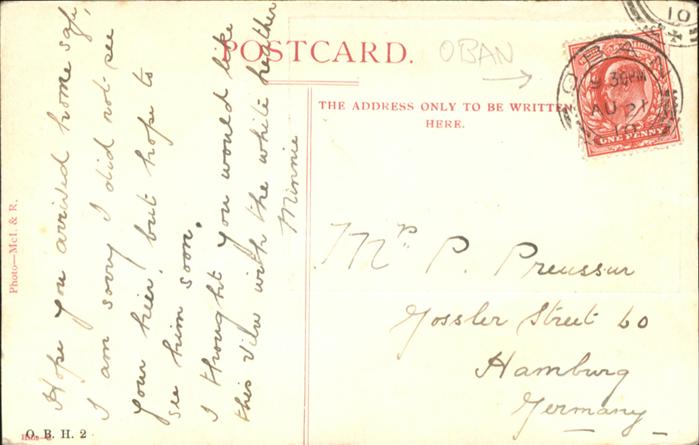 Hope you arrived home safe,
I am sorry I did not see
your hier, but hope to
see him soon.
I thought you would like
this view with the white heather
Minnie
POSTCARD.
OBAN
THE ADDRESS ONLY TO BE WRITTEN
HERE.
OBAN
9 30PM
AU 21
10
10
ONE PENNY
Mr P. Preussur
Gossler Street 60
Hamburg
Germany
Photo—McI. & R.
O. B. H. 2